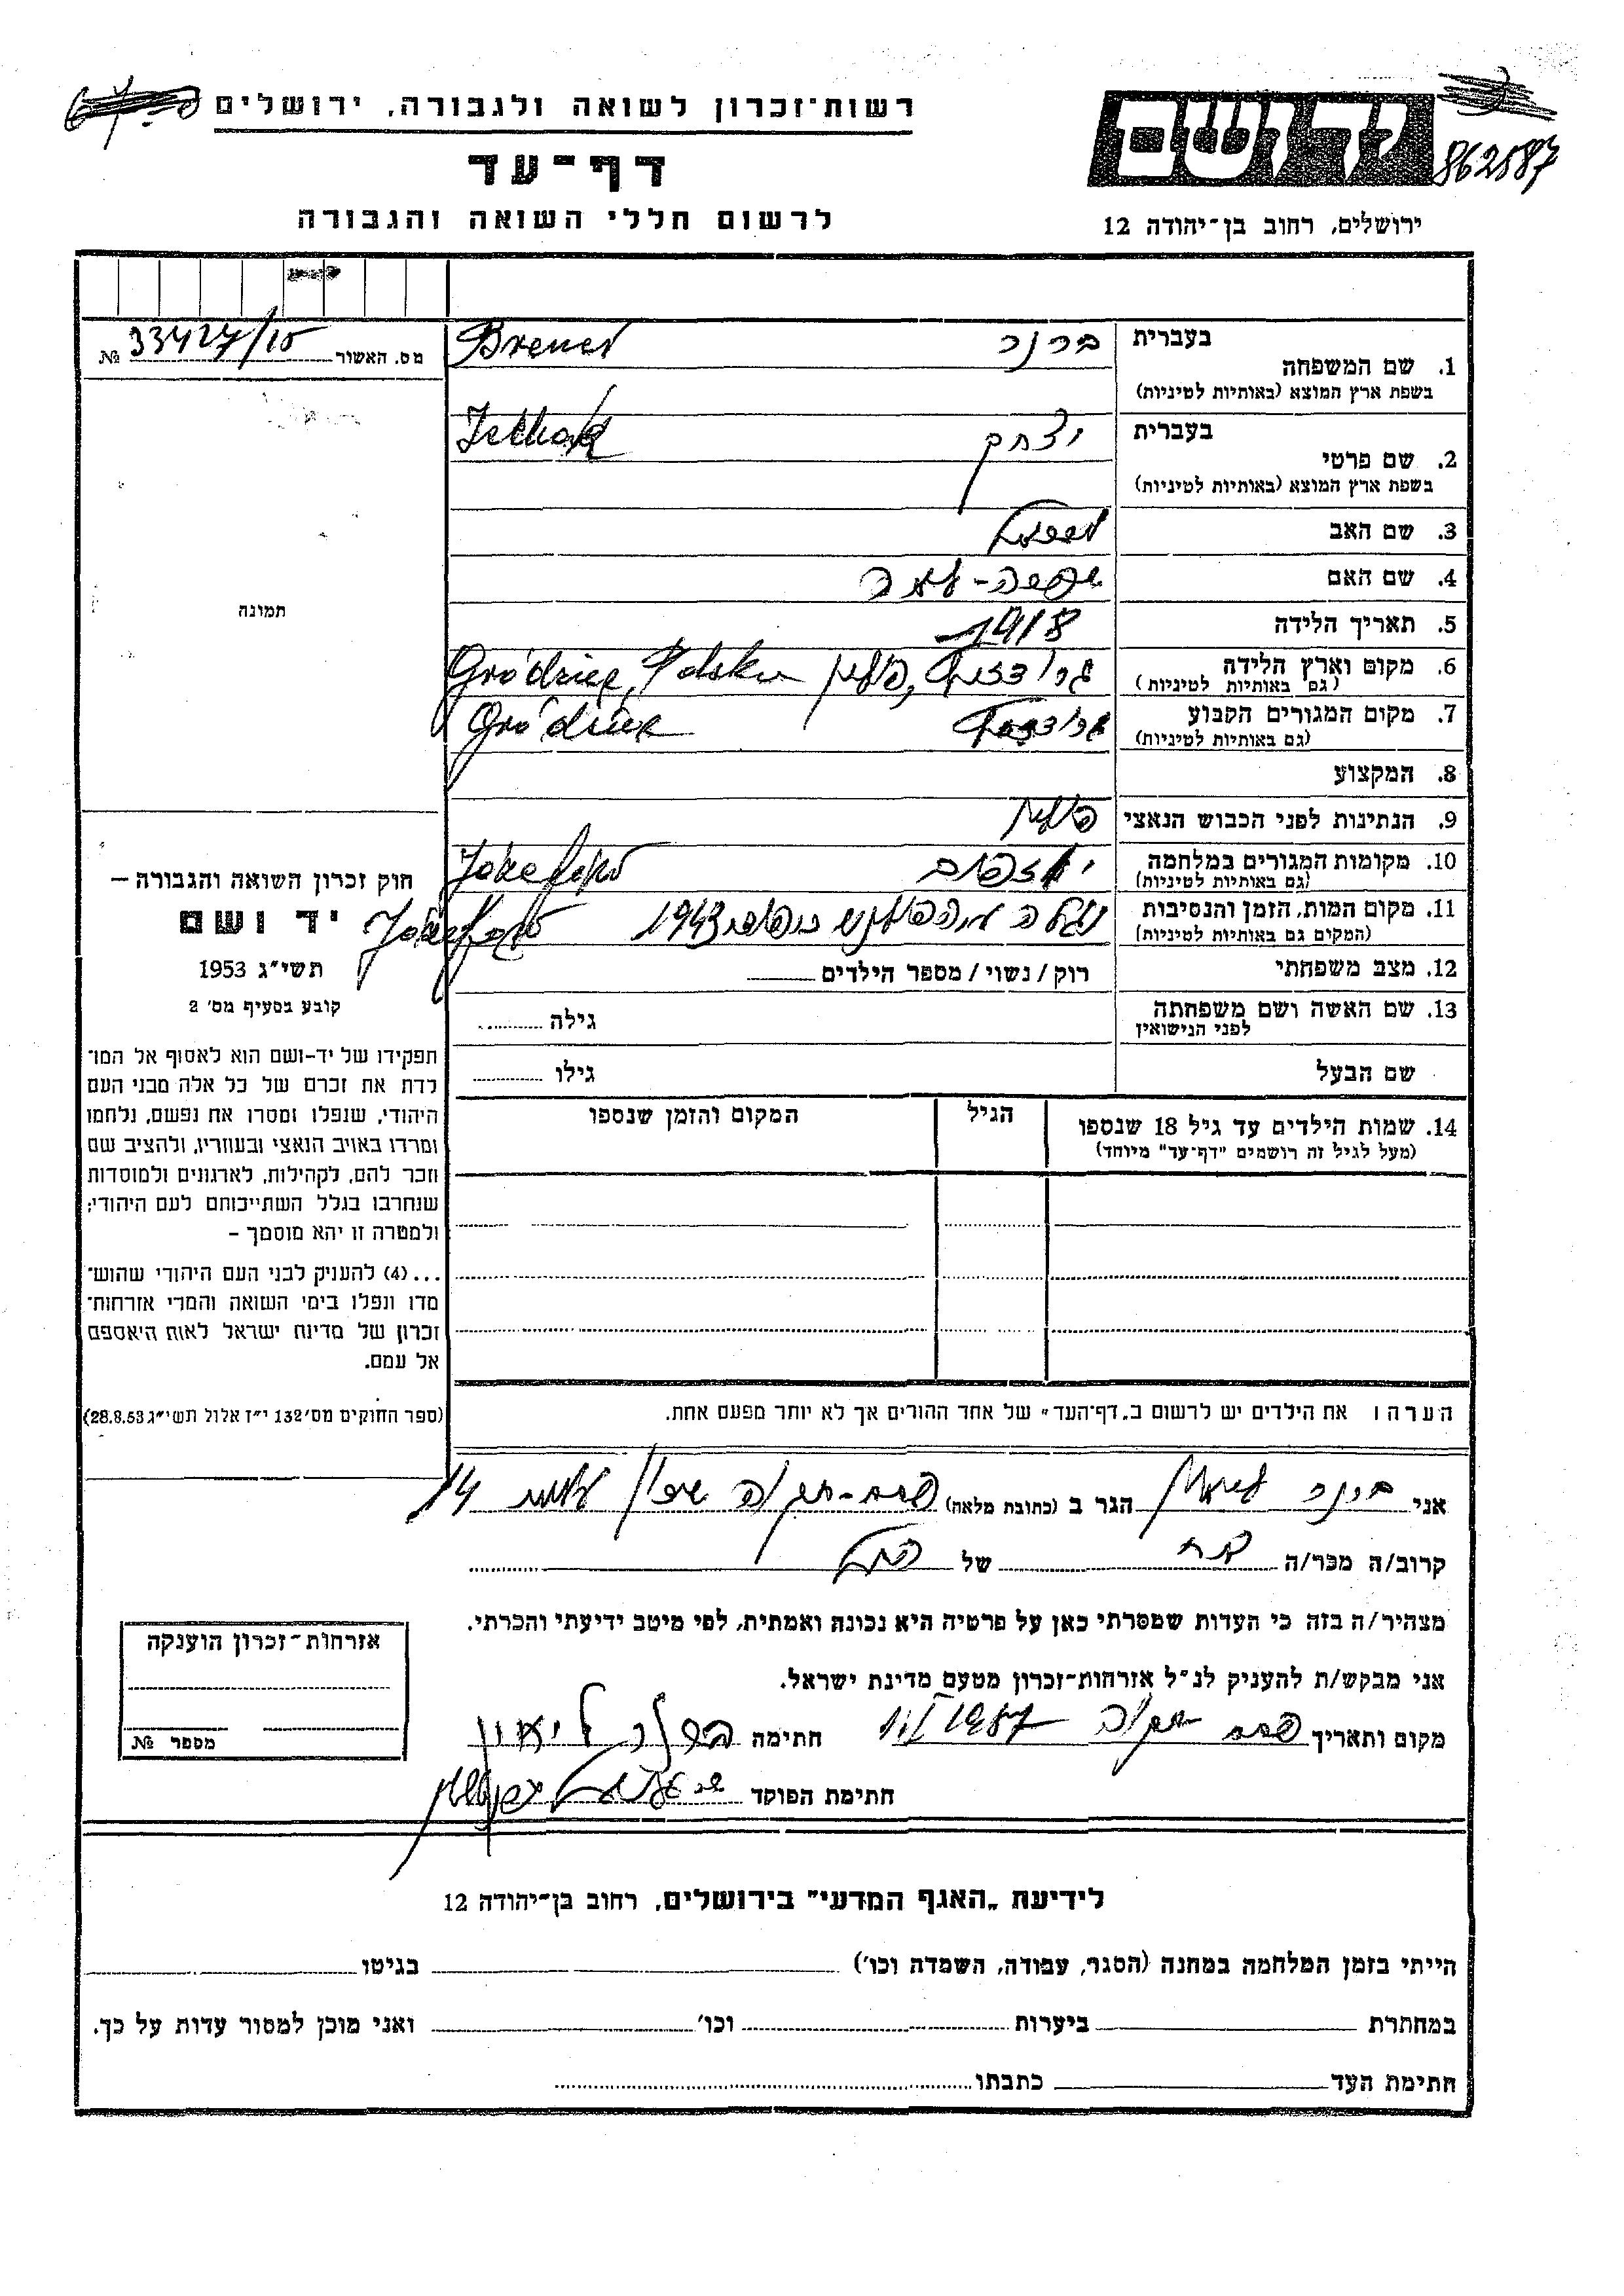 רשות־זכרון לשואה ולגבורה, ירושלים
דף־עד
לרשום חללי השואה והגבורה
יד ושם
862587
ירושלים, רחוב בן־יהודה 12
מס. האשור 33427/15 №
1. שם המשפחה
בעברית ברנר
בשפת ארץ המוצא (באותיות לטיניות) Brener
2. שם פרטי
בעברית יצחק
בשפת ארץ המוצא (באותיות לטיניות)
3. שם האב
4. שם האם
5. תאריך הלידה 1918
6. מקום וארץ הלידה
(גם באותיות לטיניות) פולין Gródziec, Polska
7. מקום המגורים הקבוע
(גם באותיות לטיניות) Gródziec
8. המקצוע
9. הנתינות לפני הכבוש הנאצי פולנית
10. מקומות המגורים במלחמה
(גם באותיות לטיניות) יוזפוב Jozefow
11. מקום המות, הזמן והנסיבות
(המקום גם באותיות לטיניות) 1943 Jozefow
12. מצב משפחתי רוק / נשוי / מספר הילדים
13. שם האשה ושם משפחתה
לפני הנישואין גילה
שם הבעל גילו
14. שמות הילדים עד גיל 18 שנספו הגיל המקום והזמן שנספו
(מעל לגיל זה רושמים "דף־עד" מיוחד)
הערה: את הילדים יש לרשום ב„דף־העד" של אחד ההורים אך לא יותר מפעם אחת.
תמונה
חוק זכרון השואה והגבורה —
יד ושם
תשי״ג 1953
קובע בסעיף מס׳ 2
תפקידו של יד-ושם הוא לאסוף אל המו־
לדת את זכרם של כל אלה מבני העם
היהודי, שנפלו ומסרו את נפשם, נלחמו
ומרדו באויב הנאצי ובעוזריו, ולהציב שם
וזכר להם, לקהילות, לארגונים ולמוסדות
שנחרבו בגלל השתייכותם לעם היהודי;
ולמטרה זו יהא מוסמך –
...(4) להעניק לבני העם היהודי שהוש־
מדו ונפלו בימי השואה והמרי אזרחות־
זכרון של מדינת ישראל לאות היאספם
אל עמם.
(ספר החוקים מס׳ 132 י״ז אלול תשי״ג 28.8.53)
אני הגר ב (כתובת מלאה) פרדס-חנה 14
קרוב/ה מכר/ה של
מצהיר/ה בזה כי העדות שמסרתי כאן על פרטיה היא נכונה ואמתית, לפי מיטב ידיעתי והכרתי.
אני מבקש/ת להעניק לנ״ל אזרחות־זכרון מטעם מדינת ישראל.
מקום ותאריך פרדס חנה 11/1987 חתימה
חתימת הפוקד
אזרחות־זכרון הוענקה
מספר №
לידיעת „האגף המדעי" בירושלים, רחוב בן־יהודה 12
הייתי בזמן המלחמה במחנה (הסגר, עבודה, השמדה וכו׳) בגיטו
במחתרת ביערות וכו׳ ואני מוכן למסור עדות על כך.
חתימת העד כתבתו